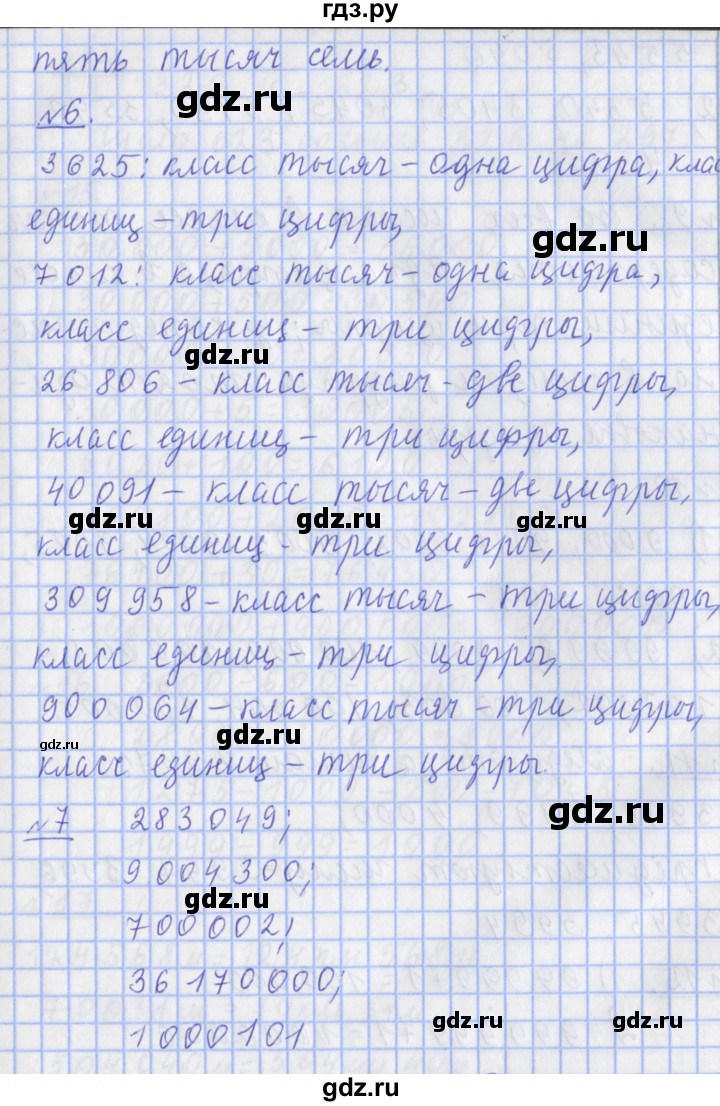 гдз.ру
пять тысяч семь.
gdz.ru
№6.
3625: класс тысяч - одна цифра, клас
единиц - три цифры,
gdz.ru
7012: класс тысяч - одна цифра,
класс единиц - три цифры,
gdz.ru
26 806 - класс тысяч - две цифры,
класс единиц - три цифры,
40 091 - класс тысяч - две цифры,
gdz.ru gdz.ru gdz.ru
класс единиц - три цифры,
309 958 - класс тысяч - три цифры,
класс единиц - три цифры,
900 064 - класс тысяч - три цифры,
gdz.ru gdz.ru
класс единиц - три цифры.
№7 283 049;
gdz.ru
9 004 300;
gdz.ru
700 002;
36 170 000;
1 000 101
gdz.ru gdz.ru
gdz.ru